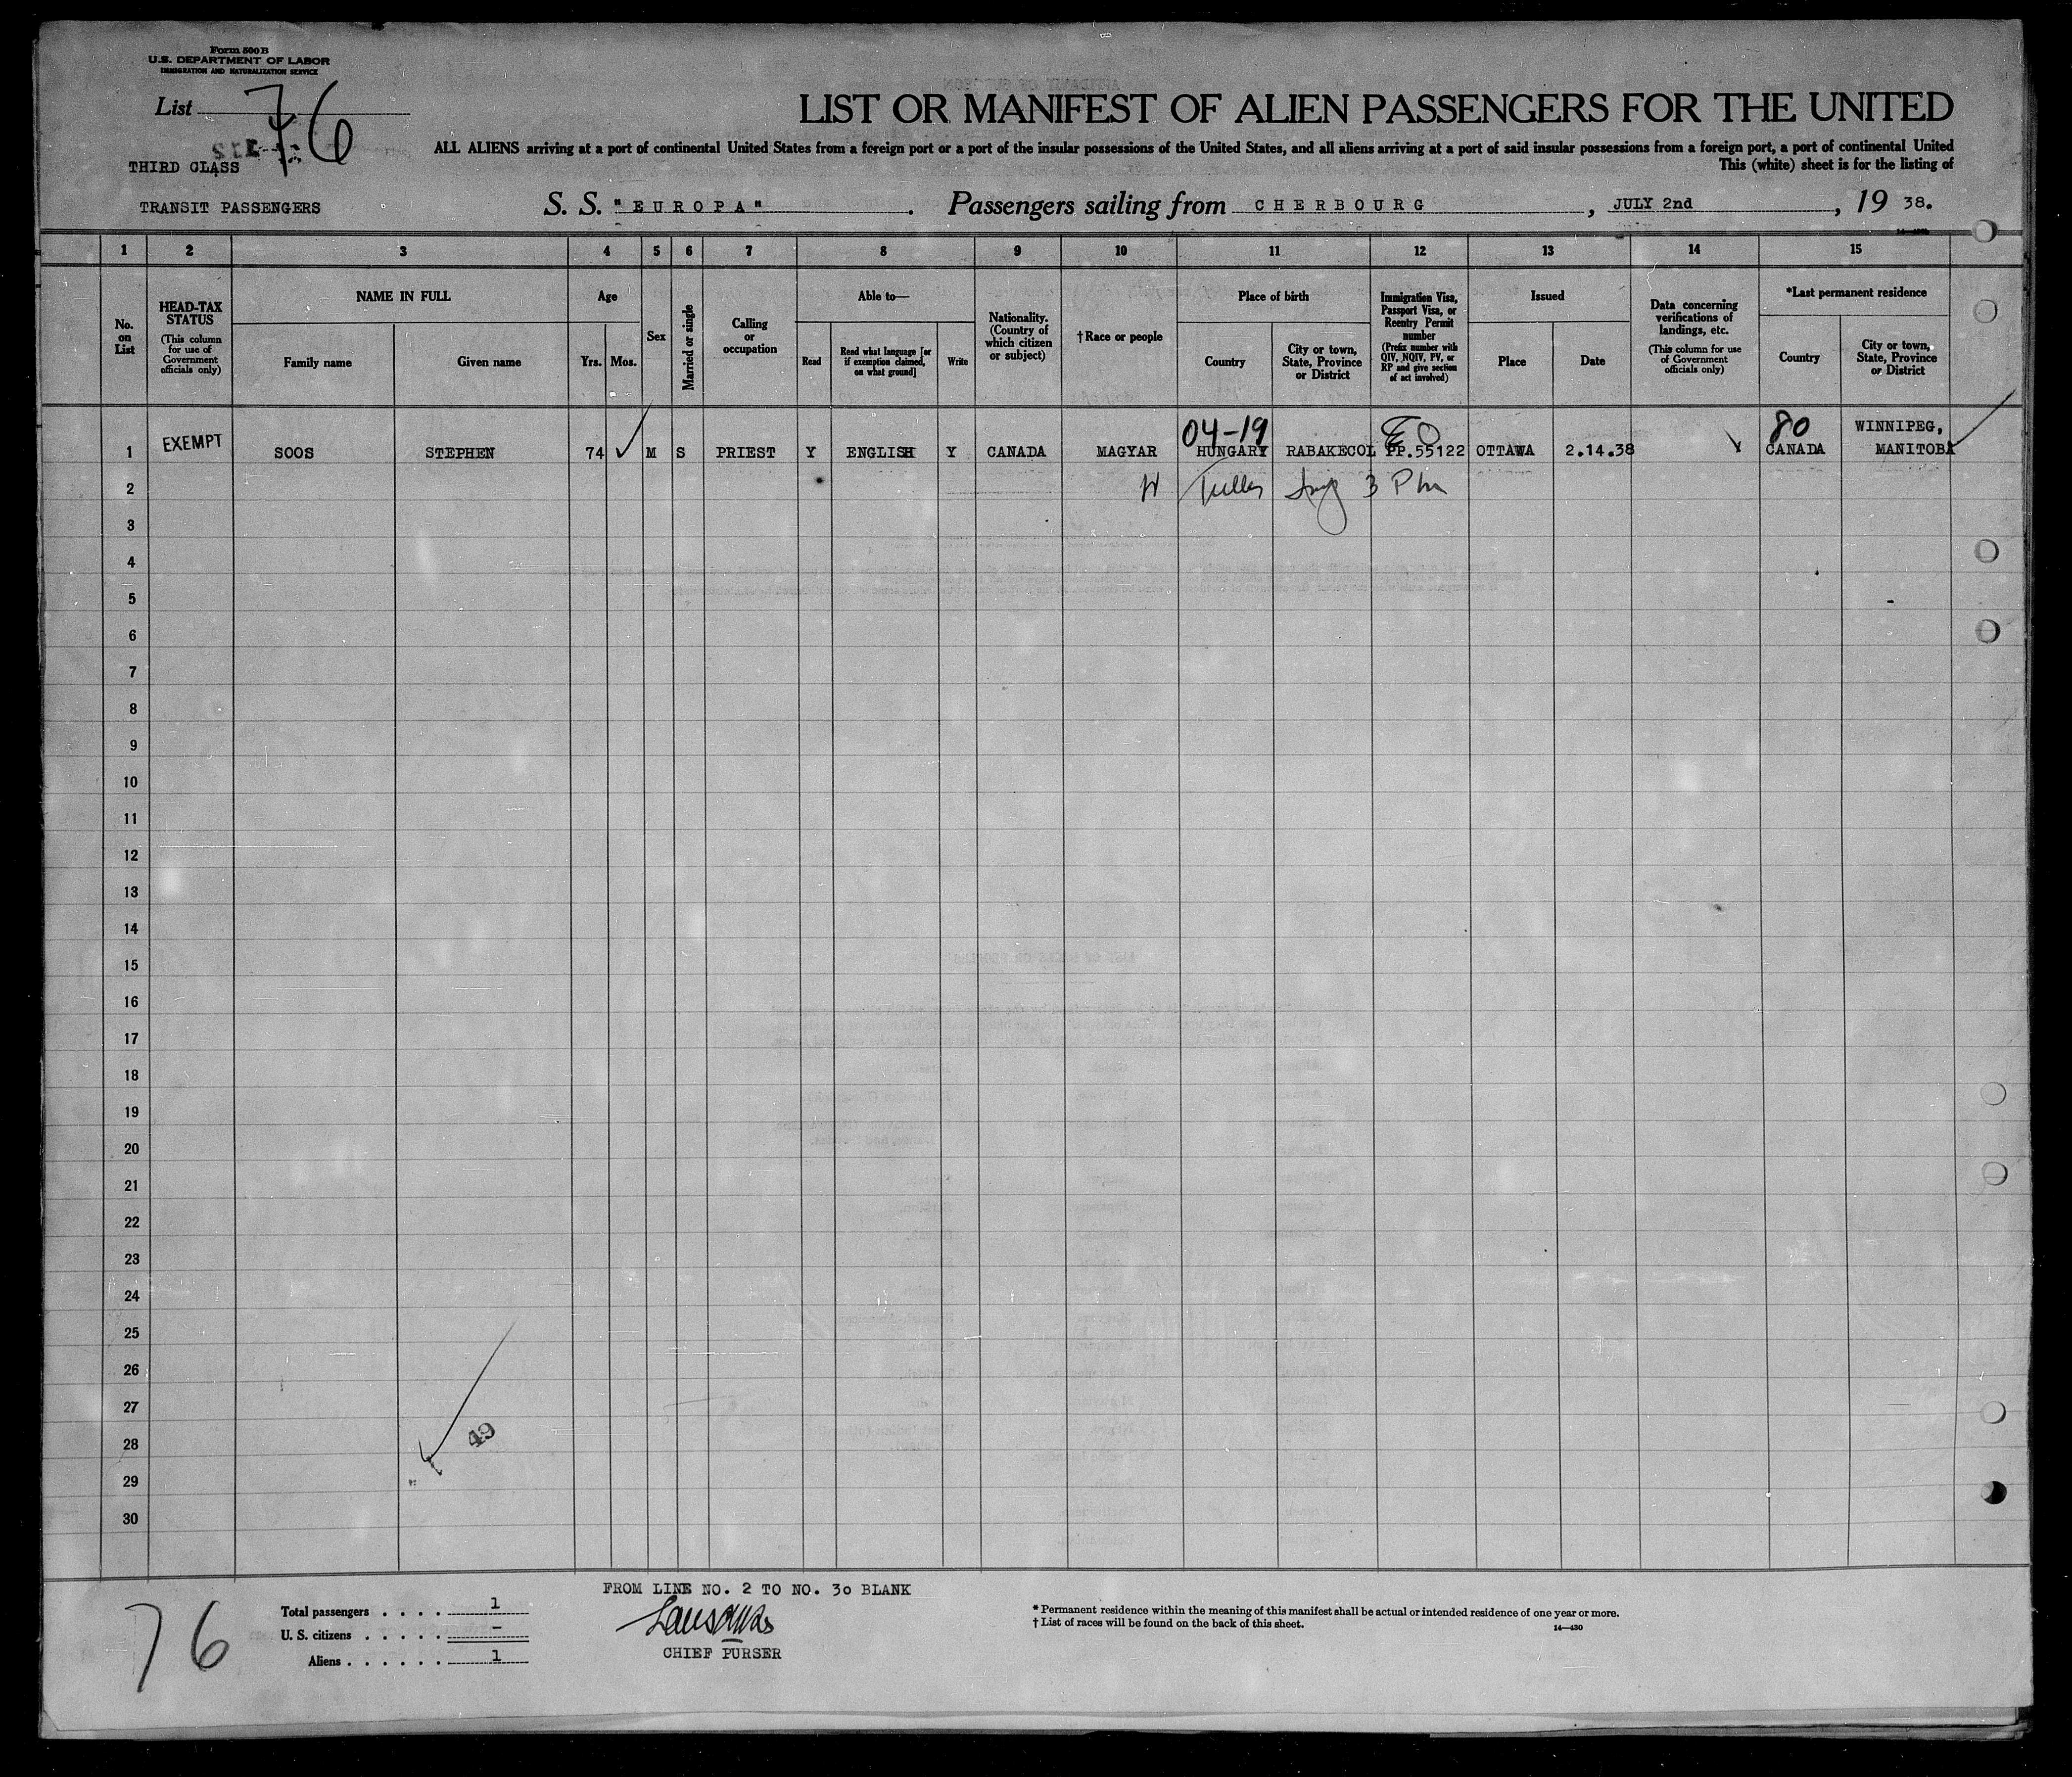 Form 500 B
U.S. DEPARTMENT OF LABOR
IMMIGRATION AND NATURALIZATION SERVICE
List 76
THIRD CLASS
TRANSIT PASSENGERS
LIST OR MANIFEST OF ALIEN PASSENGERS FOR THE UNITED
ALL ALIENS arriving at a port of continental United States from a foreign port or a port of the insular possessions of the United States, and all aliens arriving at a port of said insular possessions from a foreign port, a port of continental United
This (white) sheet is for the listing of
S. S. "EUROPA". Passengers sailing from CHERBOURG, JULY 2nd, 19 38.
1 2 3 4 5 6 7 8 9 10 11 12 13 14 15
No. on List
HEAD-TAX STATUS
(This column for use of Government officials only)
NAME IN FULL
Family name
Given name
Age
Yrs.
Mos.
Sex
Married or single
Calling or occupation
Able to—
Read
Read what language [or if exemption claimed, on what ground]
Write
Nationality. (Country of which citizen or subject)
†Race or people
Place of birth
Country
City or town, State, Province or District
Immigration Visa, Passport Visa, or Reentry Permit number
(Prefix number with QIV, NQIV, PV, or RP and give section of act involved)
Issued
Place
Date
Data concerning verifications of landings, etc.
(This column for use of Government officials only)
*Last permanent residence
Country
City or town, State, Province or District
04-19
80 WINNIPEG,
1 EXEMPT SOOS STEPHEN 74 M S PRIEST Y ENGLISH Y CANADA MAGYAR HUNGARY RABAKECOL PP.55122 OTTAWA 2.14.38 CANADA MANITOBA
2 3 Pm
3
4
5
6
7
8
9
10
11
12
13
14
15
16
17
18
19
20
21
22
23
24
25
26
27
28 49
29
30
FROM LINE NO. 2 TO NO. 30 BLANK
76
Total passengers . . . . 1
U. S. citizens . . . . . –
Aliens . . . . . . 1
CHIEF PURSER
* Permanent residence within the meaning of this manifest shall be actual or intended residence of one year or more.
† List of races will be found on the back of this sheet.
14—430